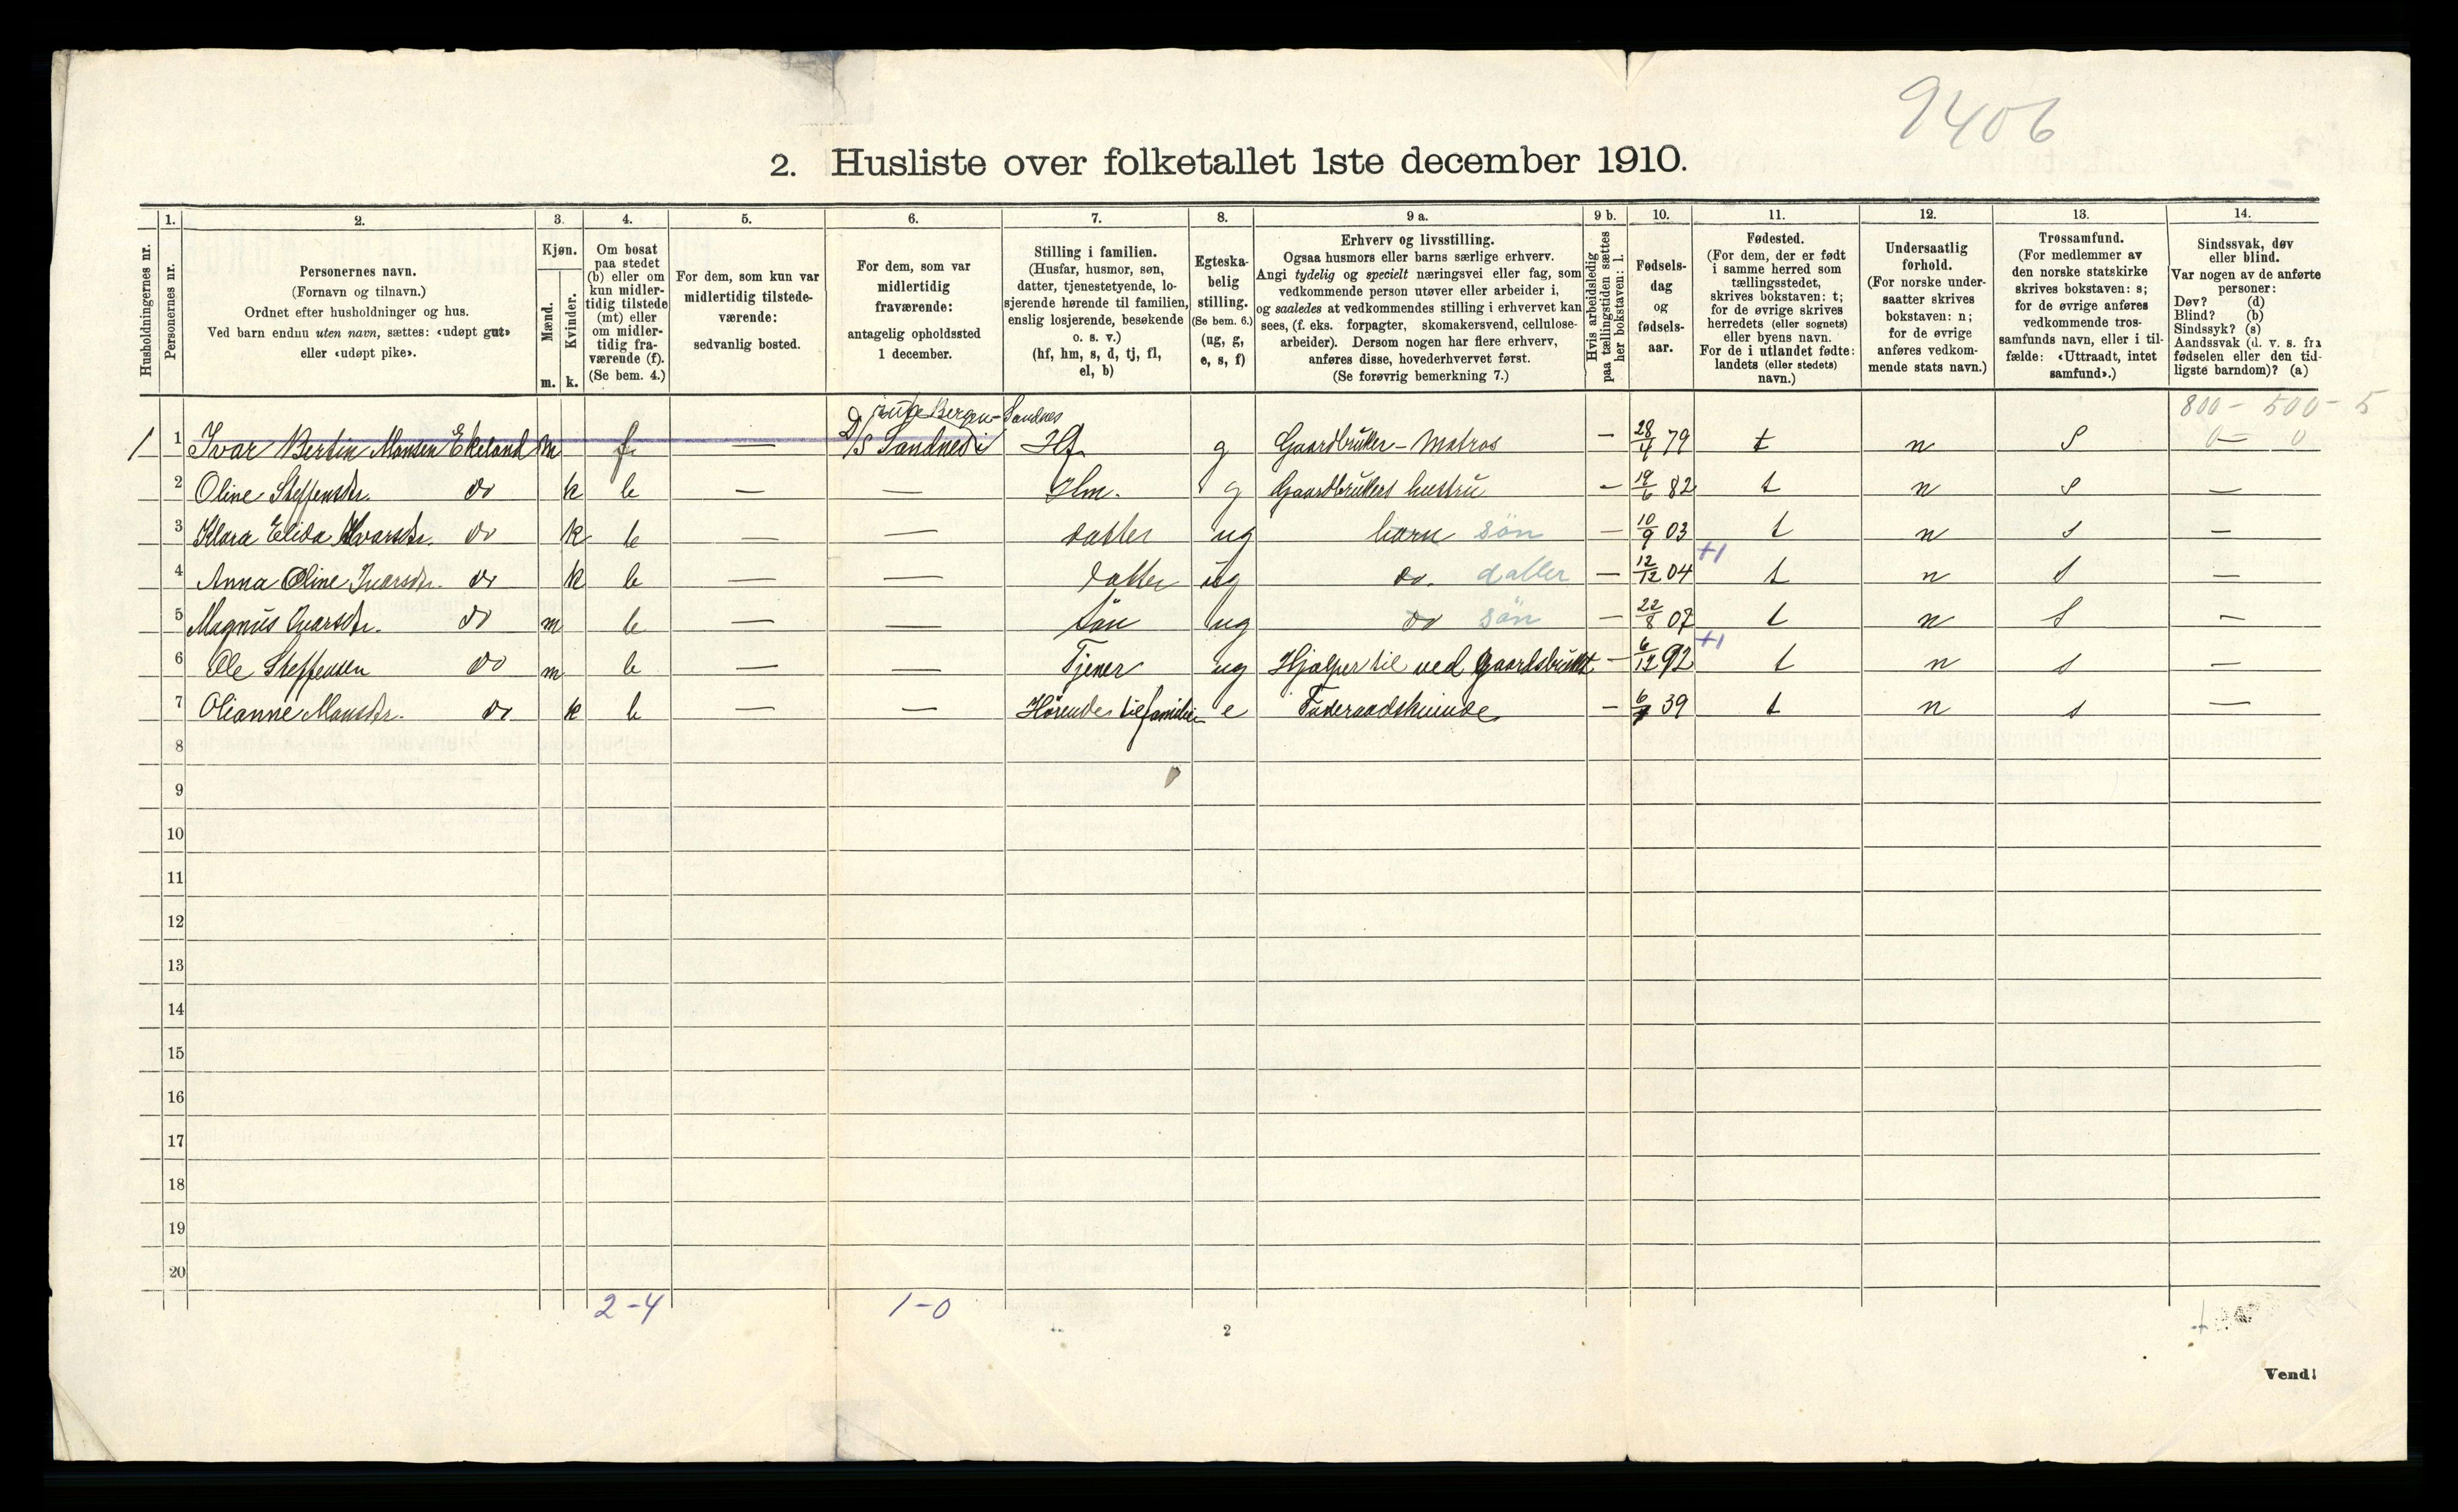 9406
2. Husliste over folketallet 1ste december 1910.
Husholdningernes nr.
1.
Personernes nr.
2.
Personernes navn.
(Fornavn og tilnavn.)
Ordnet efter husholdninger og hus.
Ved barn endnu uten navn, sættes: «udøpt gut»
eller «udøpt pike».
3.
Kjøn.
Mænd.
Kvinder.
m. k.
4.
Om bosat
paa stedet
(b) eller om
kun midler-
tidig tilstede
(mt) eller
om midler-
tidig fra-
værende (f).
(Se bem. 4.)
5.
For dem, som kun var
midlertidig tilstede-
værende:
sedvanlig bosted.
6.
For dem, som var
midlertidig
fraværende:
antagelig opholdssted
1 december.
7.
Stilling i familien.
(Husfar, husmor, søn,
datter, tjenestetyende, lo-
sjerende hørende til familien,
enslig losjerende, besøkende
o. s. v.)
(hf, hm, s, d, tj, fl,
el, b)
8.
Egteska-
belig
stilling.
(Se bem. 6.)
(ug, g,
e, s, f)
9 a.
Erhverv og livsstilling.
Ogsaa husmors eller barns særlige erhverv.
Angi tydelig og specielt næringsvei eller fag, som
vedkommende person utøver eller arbeider i,
og saaledes at vedkommendes stilling i erhvervet kan
sees, (f. eks. forpagter, skomakersvend, cellulose-
arbeider). Dersom nogen har flere erhverv,
anføres disse, hovederhvervet først.
(Se forøvrig bemerkning 7.)
9 b.
Hvis arbeidsledig
paa tællingstiden sættes
her bokstaven: l.
10.
Fødsels-
dag
og
fødsels-
aar.
11.
Fødested.
(For dem, der er født
i samme herred som
tællingsstedet,
skrives bokstaven: t;
for de øvrige skrives
herredets (eller sognets)
eller byens navn.
For de i utlandet fødte:
landets (eller stedets)
navn.)
12.
Undersaatlig
forhold.
(For norske under-
saatter skrives
bokstaven: n;
for de øvrige
anføres vedkom-
mende stats navn.)
13.
Trossamfund.
(For medlemmer av
den norske statskirke
skrives bokstaven: s;
for de øvrige anføres
vedkommende tros-
samfunds navn, eller i til-
fælde: «Uttraadt, intet
samfund».)
14.
Sindssvak, døv
eller blind.
Var nogen av de anførte
personer:
Døv? (d)
Blind? (b)
Sindssyk? (s)
Aandssvak (d. v. s. fra
fødselen eller den tid-
ligste barndom)? (a)
800 – 500 – 5
rute Bergen – Sandnes
1 1 Ivar Bertin Monsen Ekeland m f — D/S Sandnes Hf. g Gaardbruker – Matros — 28/4 79 t n S 0 — 0
2 Oline Steffensdr. do k b — — Hm. g Gaardbrukers hustru — 19/6 82 t n s —
3 Klara Elida Ivarsdr. do k b — — datter ug barn søn — 10/9 03 t n s —
4 Anna Oline Ivarsdr. do k b — — datter ug do. datter — 12/12 04 +1 t n s —
5 Magnus Ivarsdr. do m b — — søn ug do søn — 22/8 07 t n s —
6 Ole Steffensen do m b — — Tjener ug Hjælper til ved gaardsbruket — 6/12 92 +1 t n s —
7 Olianne Monsdr. do k b — — Hørende til familien e Føderaadskvinde — 39 t n s —
8
9
10
11
12
13
14
15
16
17
18
19
20
2 – 4 1 – 0
2
Vend!